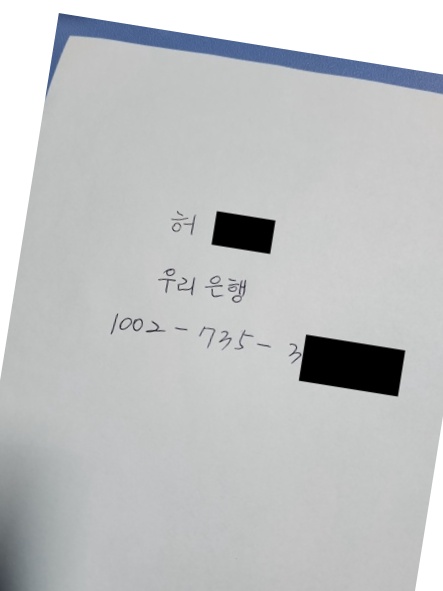 허
우리 은행
1002 - 735 - 3